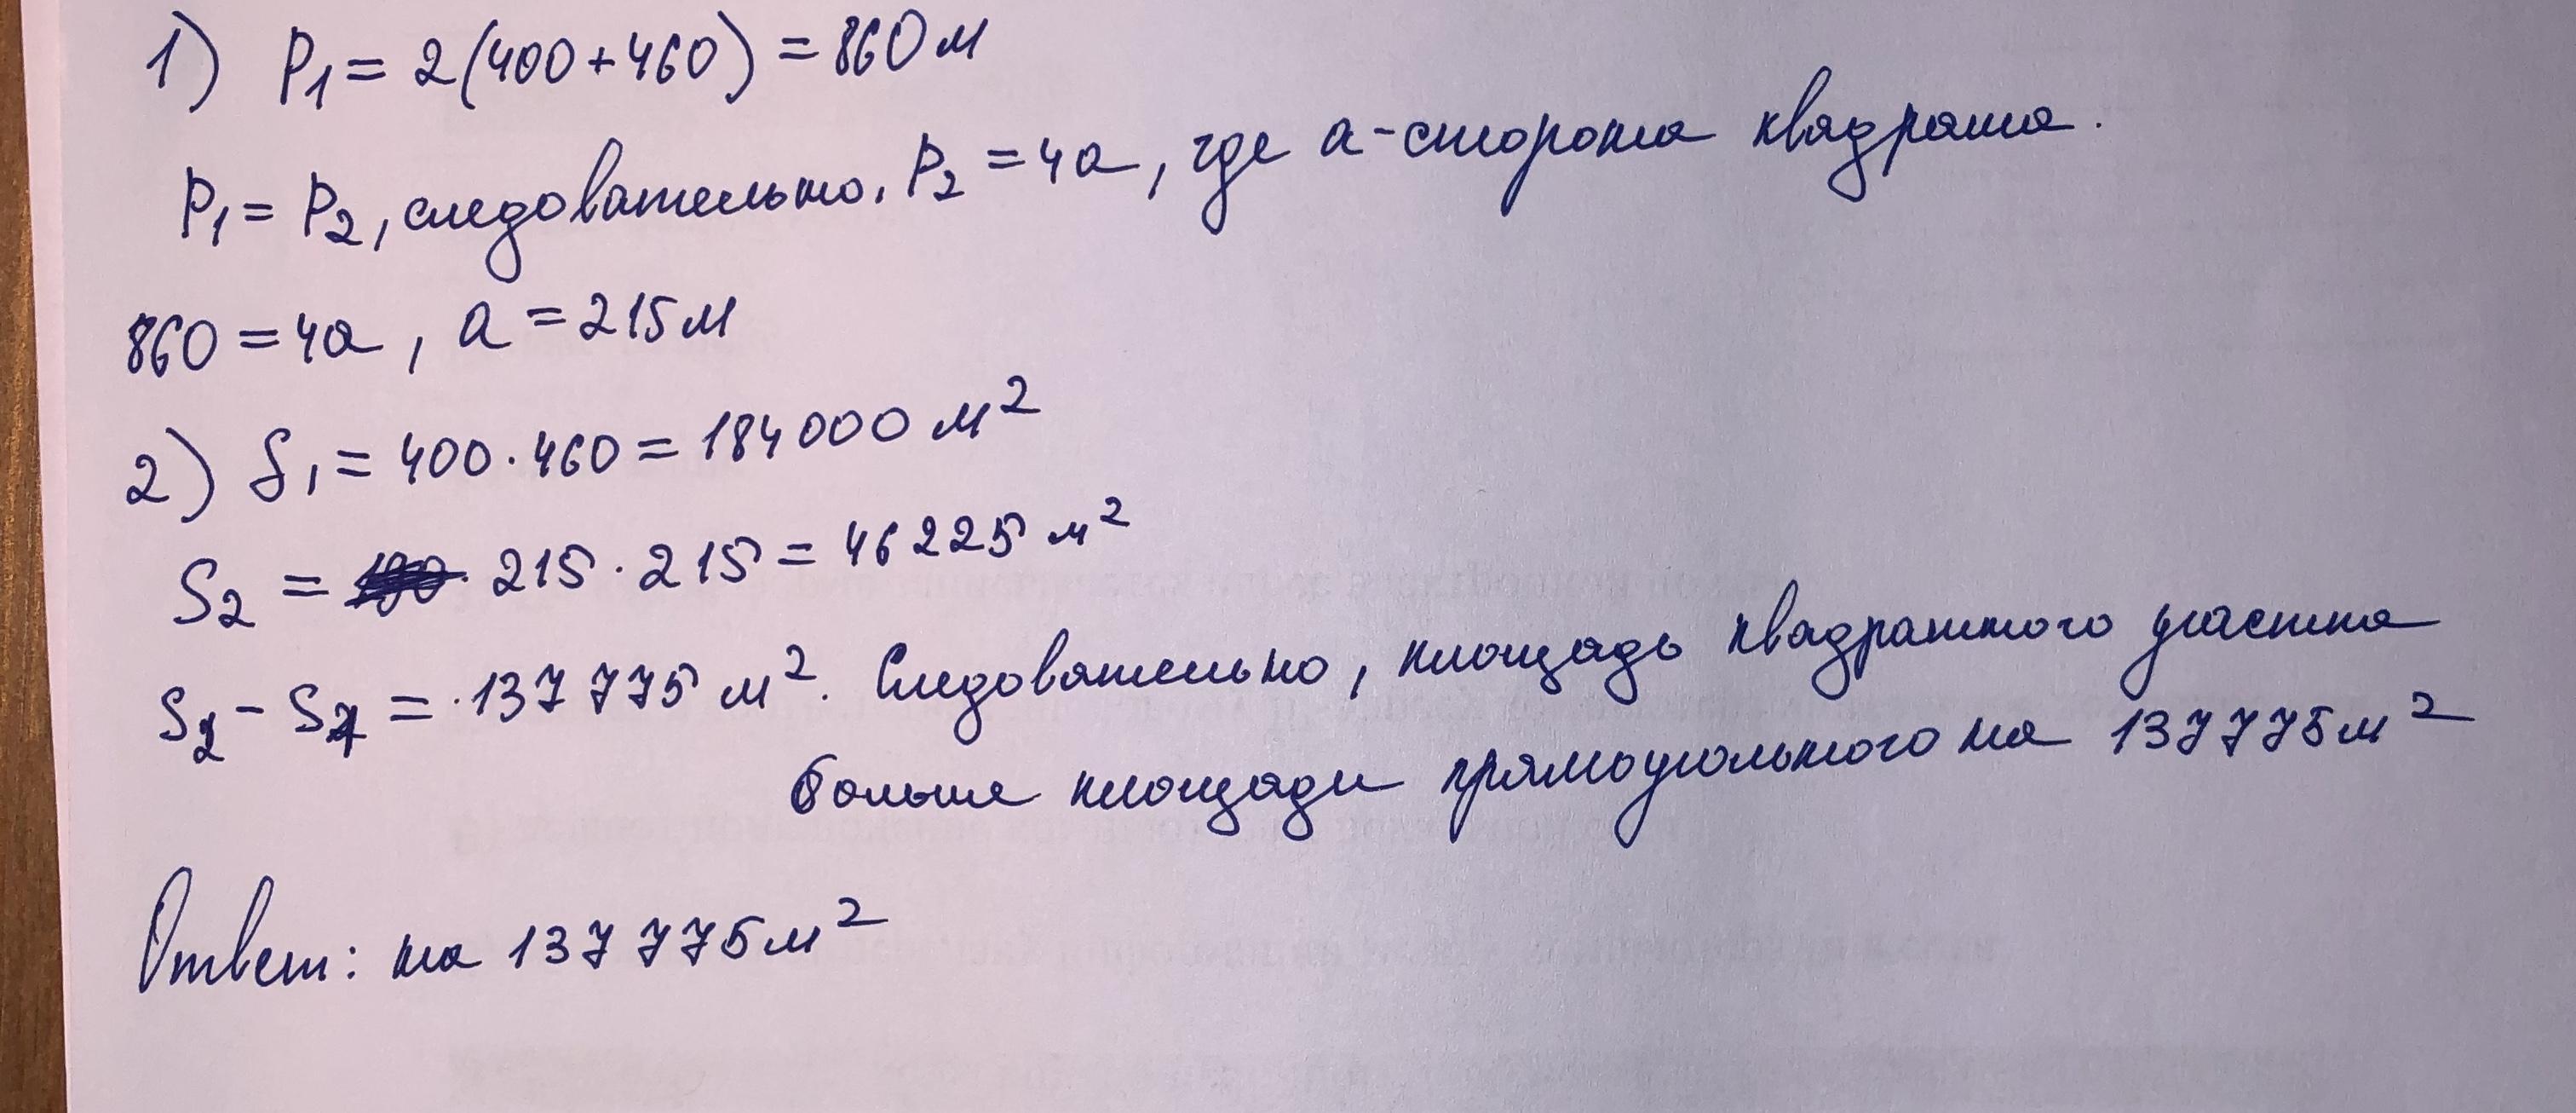 1) P₁ = 2(400+460) = 860 м
P₁ = P₂, следовательно, P₂ = 4a, где a - сторона квадрата.
860 = 4a, a = 215 м
2) S₁ = 400 · 460 = 184000 м²
S₂ = 215 · 215 = 46225 м²
S₂ - S₁ = 137775 м². Следовательно, площадь квадратного участка
больше площади прямоугольного на 137775 м²
Ответ: на 137775 м²